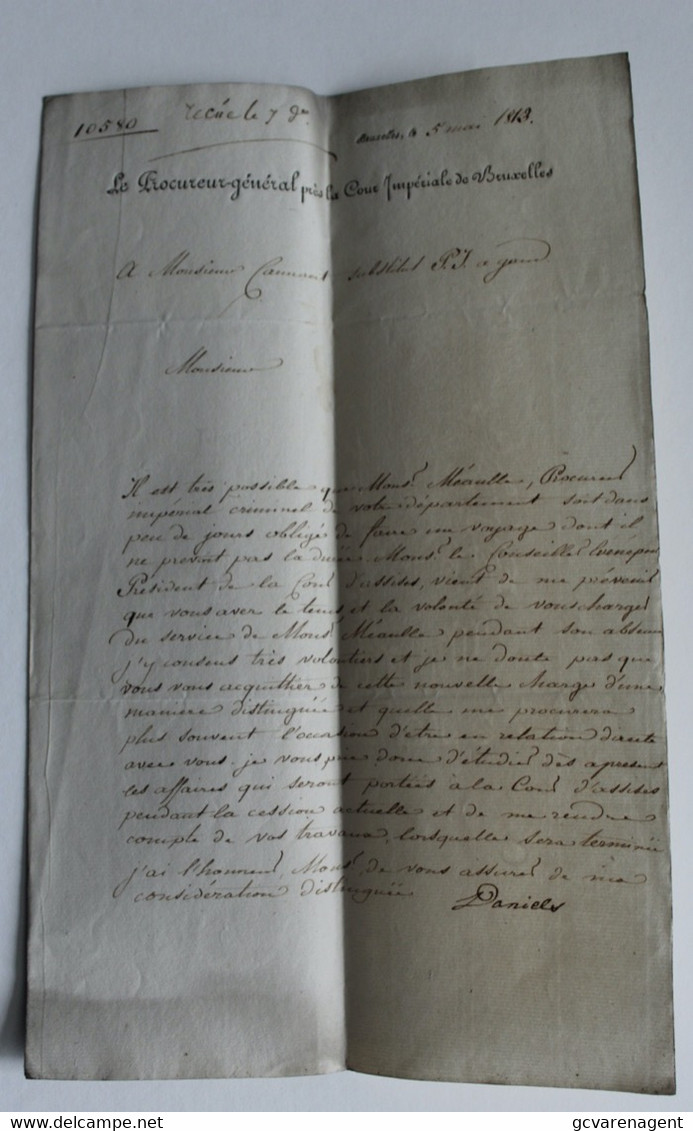 10580
recue le 7 dn
Bruxelles, le 5 mai 1813.
Le Procureur-général près la Cour Impériale de Bruxelles
A Monsieur substitut P.I. a gand
Monsieur
Il est très possible que Monsr. Méaulle, Procureur
impérial criminel de votre département soit dans
peu de jours obligé de faire un voyage dont il
ne prevint pas la durée Monsr. le Conseiller
Président de la Cour d'assises, vient de me prévenir
que vous avez le tems et la volonté de vous charger
du service de Monsr Méaulle pendant son absence
j'y consens très volontiers et je ne doute pas que
vous vous acquittiez de cette nouvelle charge d'une
maniere distinguée et quelle me procurera
plus souvent l'occasion d'être en relation directe
avec vous. je vous prie donc d'étudier dès apresent
les affaires qui seront portées à la Cour d'assises
pendant la cession actuelle et de me rendre
compte de vos travaux, lorsquelle sera terminée
j'ai l'honneur, Monsr, de vous assurer de ma
considération distinguée
Daniels
delcampe.net
gcvarenagent